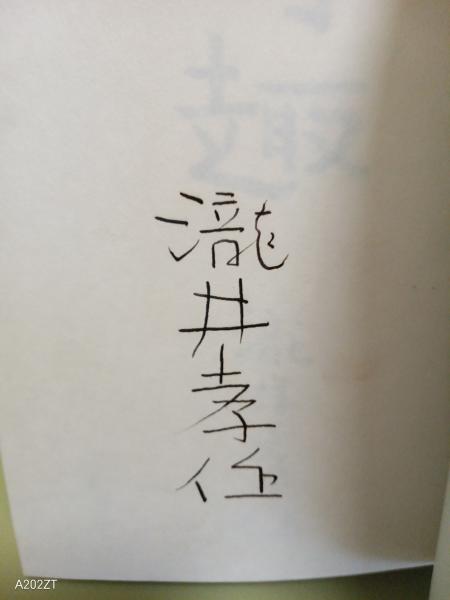 瀧井孝作
A202ZT